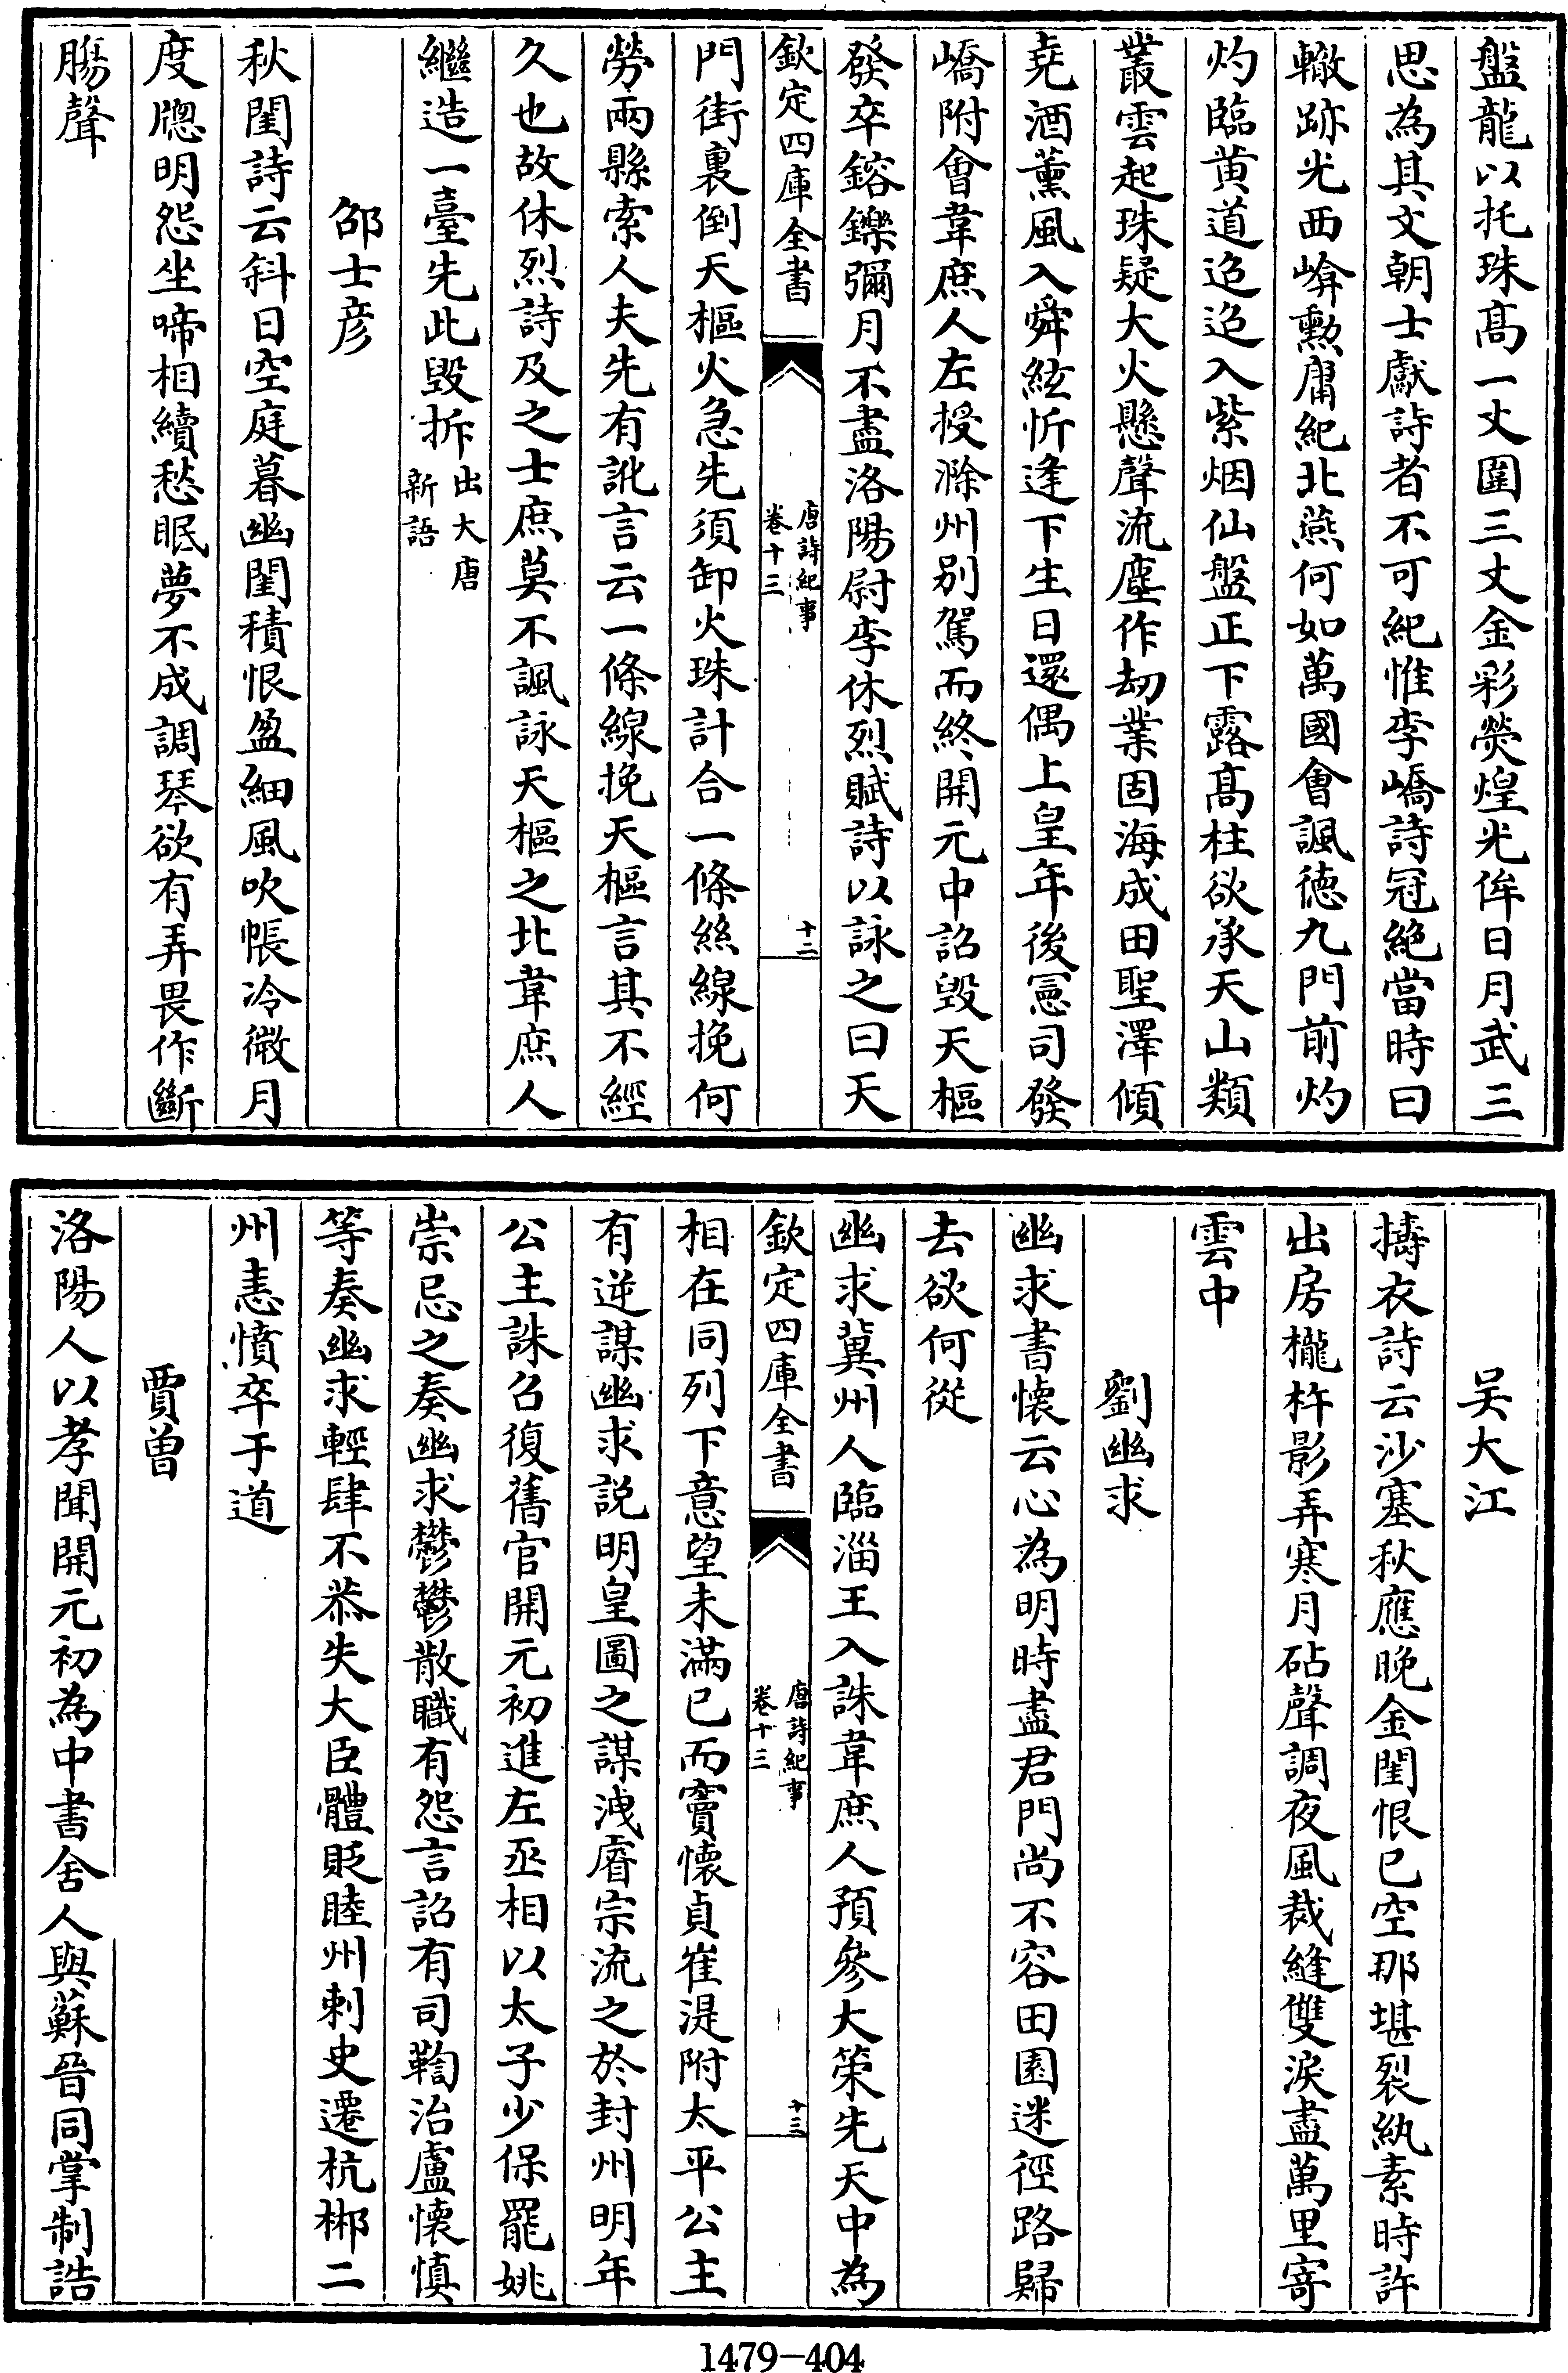 盤龍以托珠髙一丈圍三丈金彩熒煌光侔日月武三
思為其文朝士獻詩者不可紀惟李嶠詩冠絶當時曰
轍跡光西崦勲庸紀北燕何如萬國會諷徳九門前灼
灼臨黄道迢迢入紫烟仙盤正下露髙柱欲承天山類
叢雲起珠疑大火懸聲流塵作劫業固海成田聖澤傾
堯酒薰風入舜絃忻逢下生日還偶上皇年後憲司發
嶠附會韋庶人左授滁州别駕而終開元中詔毁天樞
發卒鎔鑠彌月不盡洛陽尉李休烈賦詩以詠之曰天
欽定四庫全書
唐詩紀事
卷十三
十二
門街裏倒天樞火急先須卸火珠計合一條絲線挽何
勞兩縣索人夫先有訛言云一條線挽天樞言其不經
久也故休烈詩及之士庶莫不諷詠天樞之北韋庶人
繼造一臺先此毁拆出大唐
新語
邵士彦
秋閨詩云斜日空庭暮幽閨積恨盈細風吹帳冷微月
度牕明怨坐啼相續愁眠夢不成調琴欲有弄畏作斷
腸聲
吴大江
擣衣詩云沙塞秋應晚金閨恨已空那堪裂紈素時許
出房櫳杵影弄寒月砧聲調夜風裁縫雙淚盡萬里寄
雲中
劉幽求
幽求書懐云心為明時盡君門尚不容田園迷徑路歸
去欲何從
幽求冀州人臨淄王入誅韋庶人預參大策先天中為
欽定四庫全書
唐詩紀事
卷十三
十三
相在同列下意望未滿已而竇懐貞崔湜附太平公主
有逆謀幽求説明皇圖之謀洩睿宗流之於封州明年
公主誅召復舊官開元初進左丞相以太子少保罷姚
崇忌之奏幽求鬱鬱散職有怨言詔有司鞫治盧懐慎
等奏幽求輕肆不恭失大臣體貶睦州刺史遷杭郴二
州恚憤卒于道
賈曽
洛陽人以孝聞開元初為中書舍人與蘇晉同掌制誥
1479-404